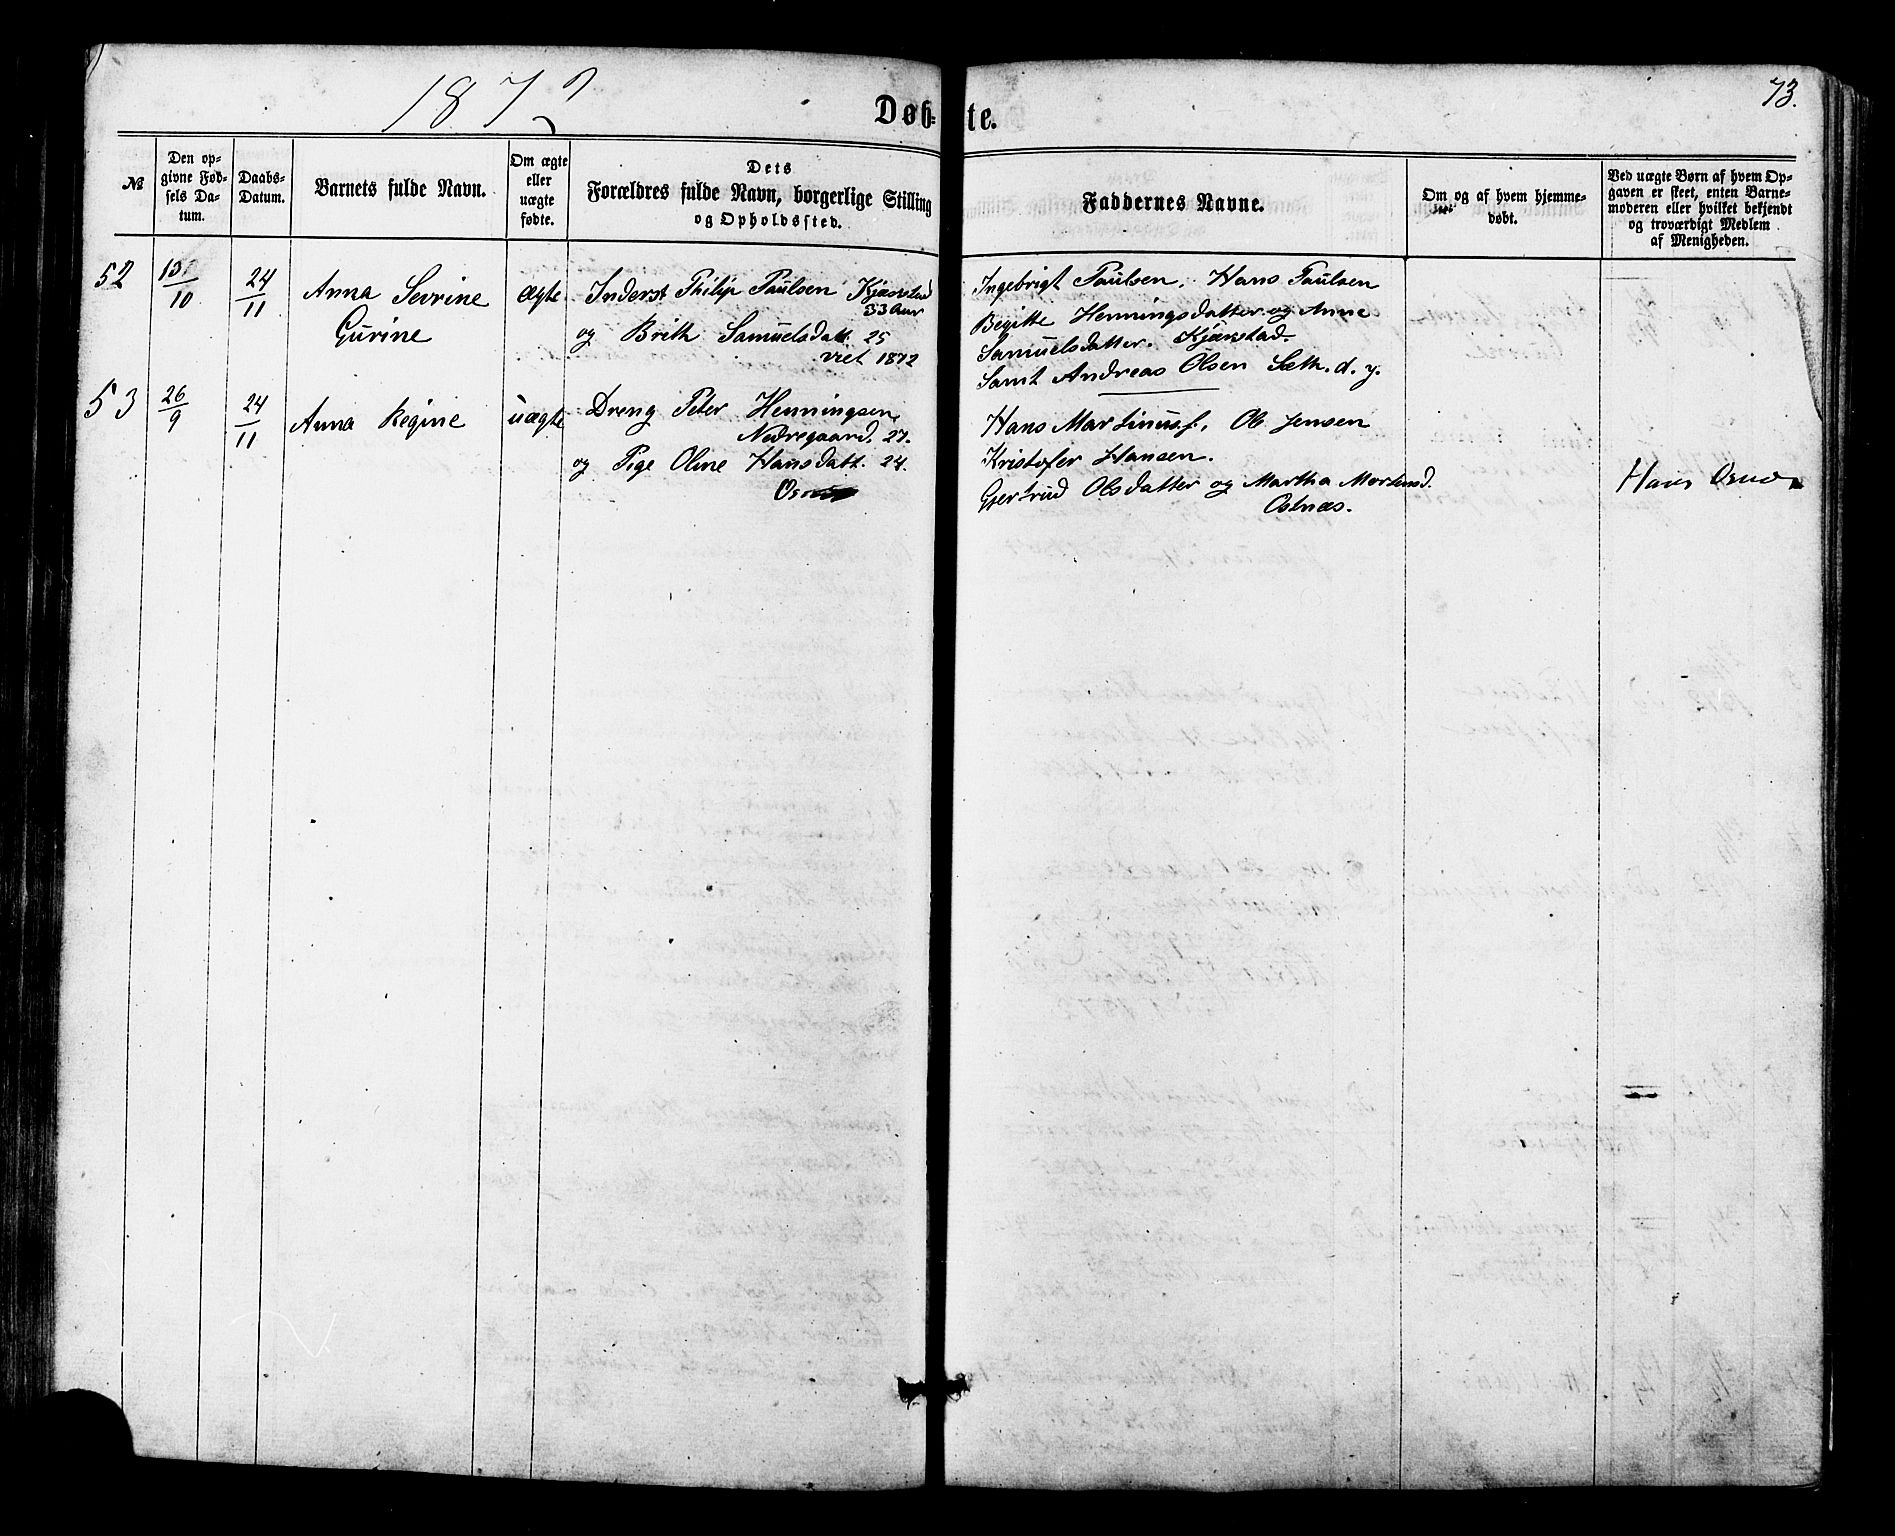 1872
73.
Døbte.
№
Den op-
givne Fød-
sels Da-
tum.
Daabs-
Datum.
Barnets fulde Navn.
Om ægte
eller
uægte
fødte.
Dets
Forældres fulde Navn, borgerlige Stilling
og Opholdssted.
Faddernes Navne.
Om og af hvem hjemme-
døbt.
Ved uægte Børn af hvem Op-
gaven er skeet, enten Barne-
moderen eller hvilket bekjendt
og troværdigt Medlem
af Menigheden.
52
10
24
11
Anna Sevrine
Gurine
Ægte.
Inderst Philip Paulsen Kjærstad
33 Aar
og Brith Samuelsdatt. 25
viet 1872
Ingebrigt Paulsen, Hans Paulsen
Begitte Henningsdatter og Anne
Samuelsdatter. Kjærstad.
Samt Andreas Olsen Sæth. d. y.
53
26
9
24
11
Anna Regine
uægte
Dreng Peter Henningsen
Nedregaard. 27.
og Pige Oline Hansdatt. 24.
Hans Martinus f. Ole Jensen
Kristofer Hansen.
Gjertrud Olsdatter og Martha Mortensd.
Osenæs.
Hans Osnes